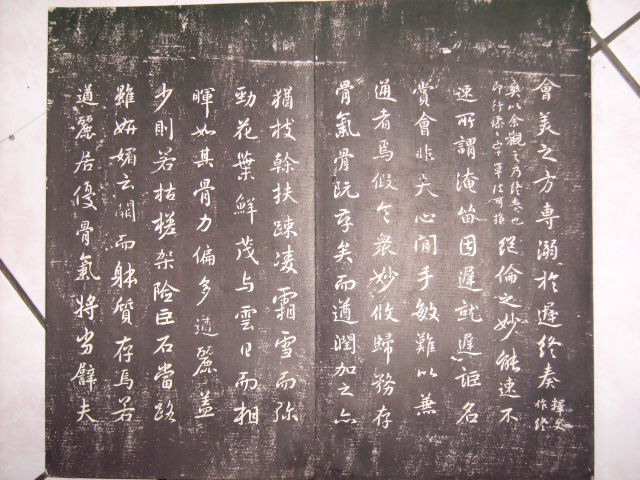 會美之方專溺於遲終奏釋文作終
爽以余觀之乃終奏也字草法可絕倫之妙能速不
速所謂淹留因遲就遲詎名
賞會非夫心閒手敏難以兼
通者焉假令衆妙攸歸務存
骨氣骨既存矣而遒潤加之亦
猶枝幹扶疎凌霜雪而弥
勁花葉鮮茂与雲日而相
暉如其骨力偏多遒麗蓋
少則若枯槎架險巨石當路
雖妍媚云闕而躰質存焉若
遒麗居優骨氣將劣譬夫